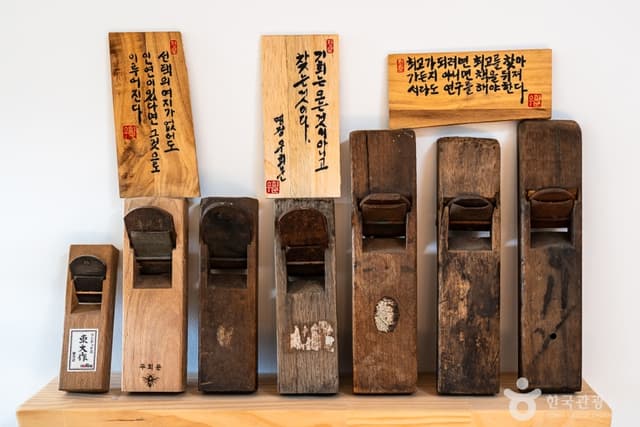 선택의 여지가 없어도
인연이 있다면 그것으로
이루어 진다.
기회는 오는것이 아니고
찾는것이다.
최고가 되려면 최고를 찾아
가든지 아니면 책을 뒤져
서라도 연구를 해야한다
東大作
한국관광